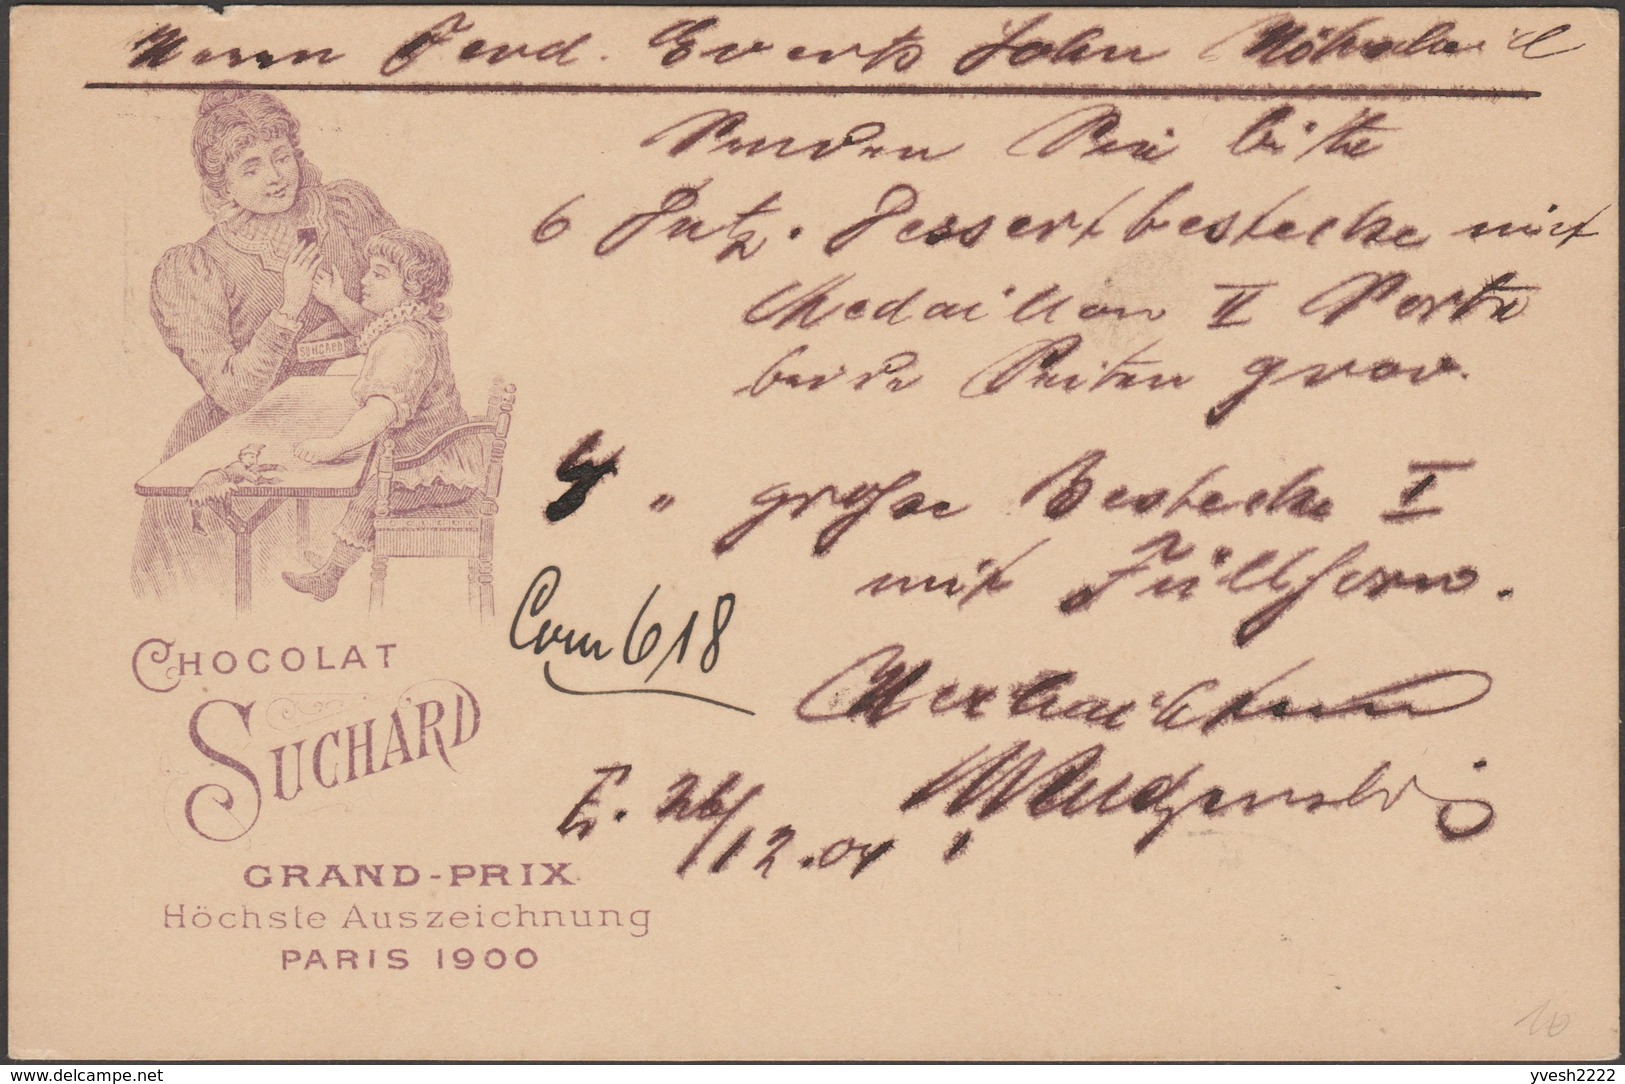 Herrn Ferd. Everts Sohn
Senden Sie bitte
6 Dutz. Dessertbestecke mit
Medaillon II Sorte
beide Seiten grav.
4 " große Bestecke I
mit Füllhorn.
SUCHARD
Com 618
CHOCOLAT
SUCHARD
E. 26/12.04
GRAND-PRIX
Höchste Auszeichnung
PARIS 1900
10
delcampe.net
yvesh2222